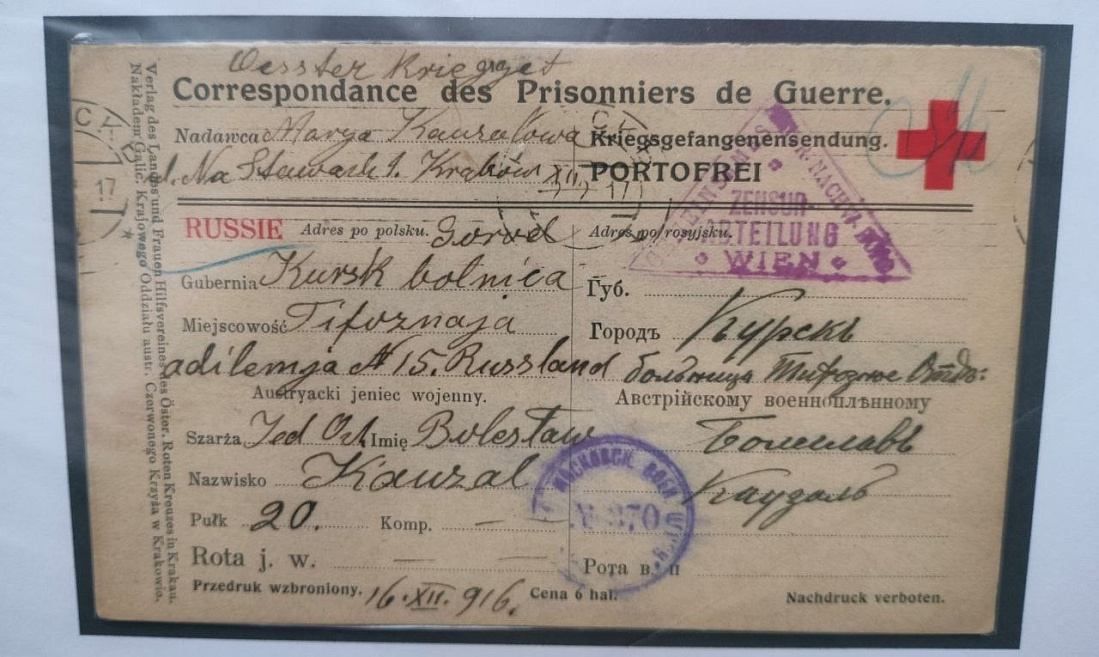 Oesster Kriegsgef
Correspondance des Prisonniers de Guerre.
Nadawca Marya Kauzalowa
Kriegsgefangenensendung.
ul. Na Stawach 1. Kraków XII
PORTOFREI
17
17
ZENSUR-
ABTEILUNG
WIEN
RUSSIE Adres po polsku. Gorod
Adres po rosyjsku.
Gubernia Kursk bolnica
Губ.
Miejscowość Tifoznaja
Городъ Курскъ
adilemja № 15. Russland
больница Тифозное Отд:
Austryacki jeniec wojenny.
Австрійскому военноплѣнному
Szarża Jed Och Imię Bolesław
Болеславъ
Nazwisko Kauzal
Каузаль
Pułk 20. Komp.
МОСКОВСК. ВОЕН ЦЕНЗ.
№ 370
Rota j. w.
Рота в. п
Przedruk wzbroniony. 16. XII. 916. Cena 6 hal.
Nachdruck verboten.
Verlag des Landes und Frauen Hilfsvereines des Öster. Roten Kreuzes in Krakau.
Nakładem Galic. Krajowego Oddziału austr. Czerwonego Krzyża w Krakowie.